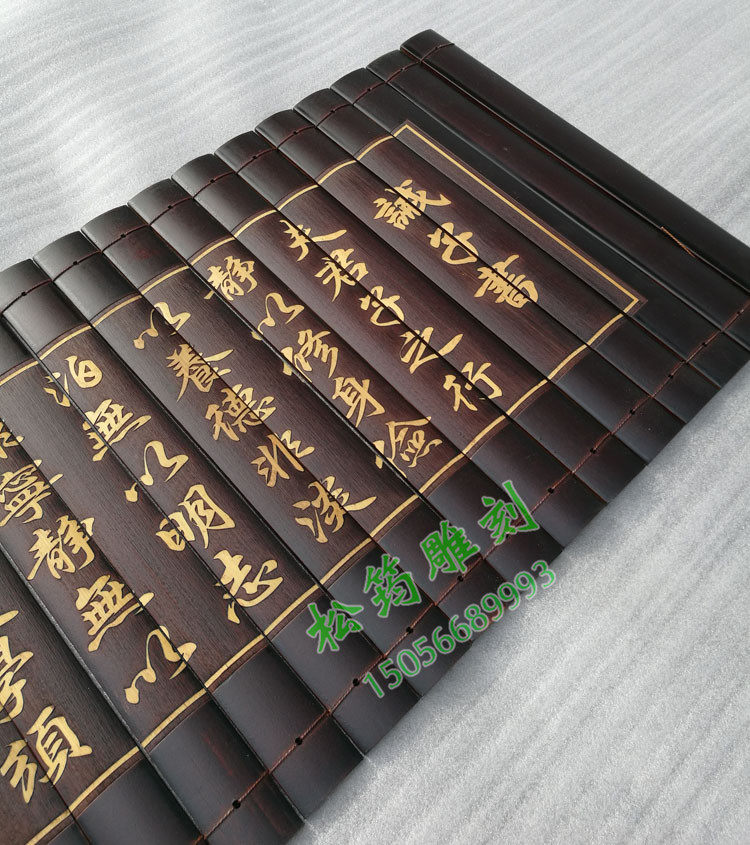 誡子書
夫君子之行
静以修身儉
以養德非淡
泊無以明志
寧静無以
須
松筠雕刻
15056689993